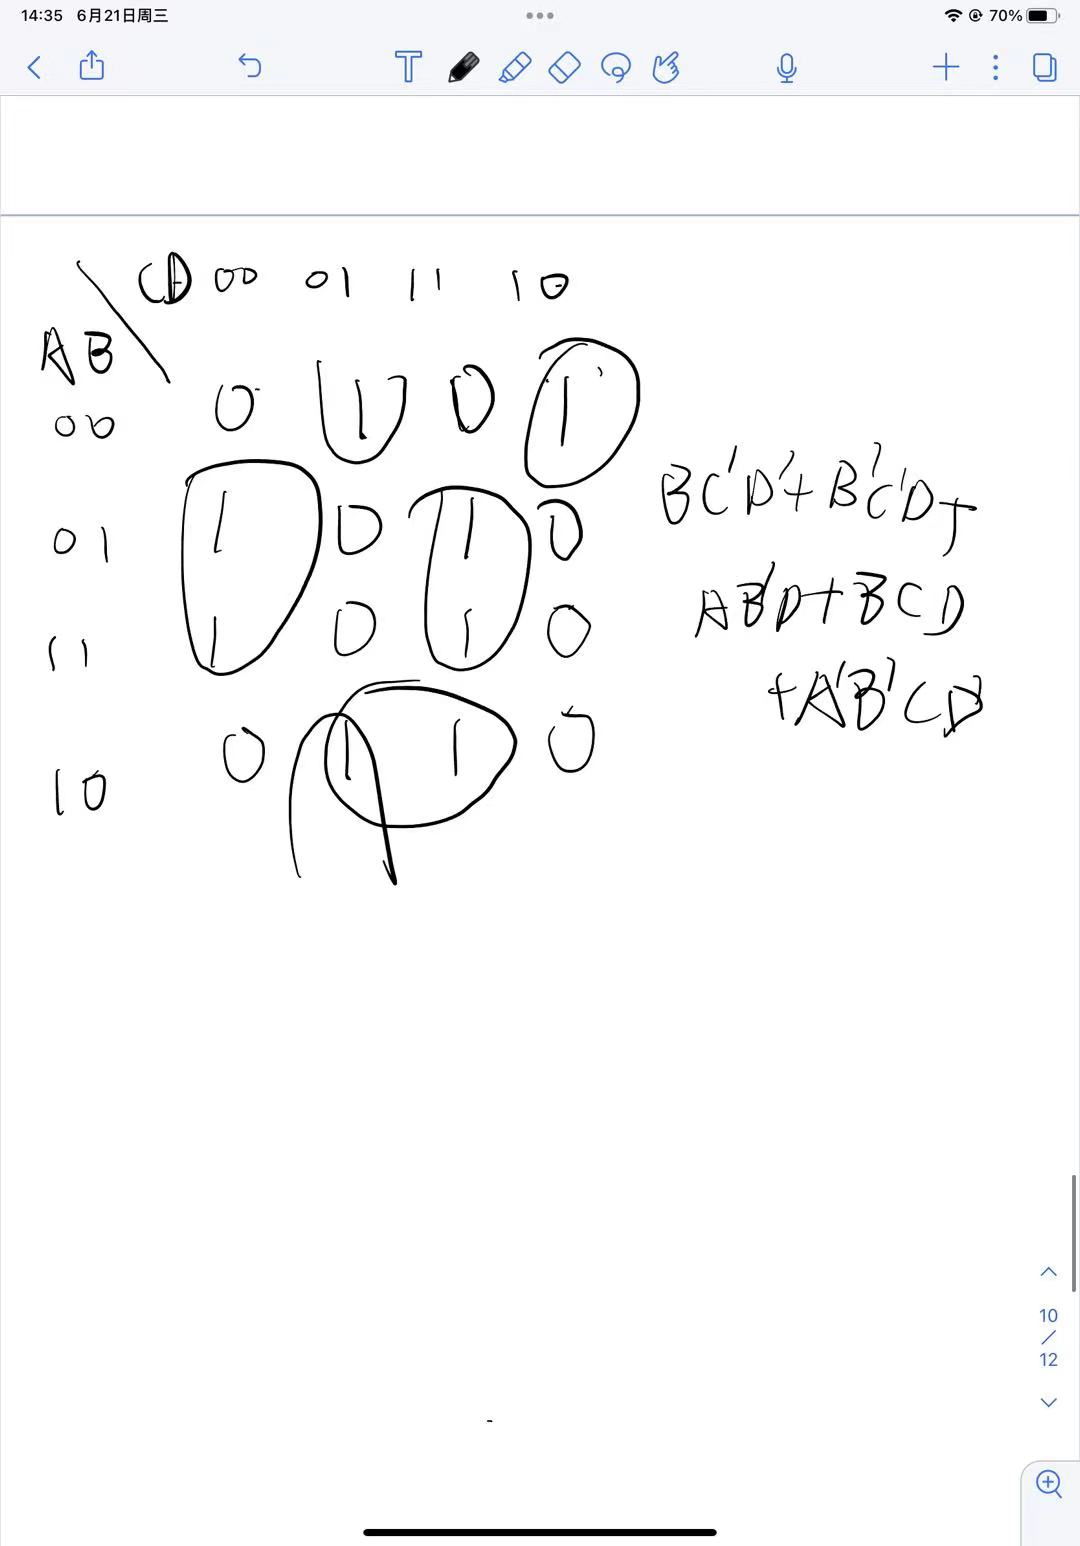 14:35 6月21日周三
70%
T
CD 00 01 11 10
AB
00 0 1 0 1
01 1 0 1 0
11 1 0 1 0
10 0 1 1 0
BC'D'+B'C'D+
AB'D+BCD
+A'B'CD'
10
/
12